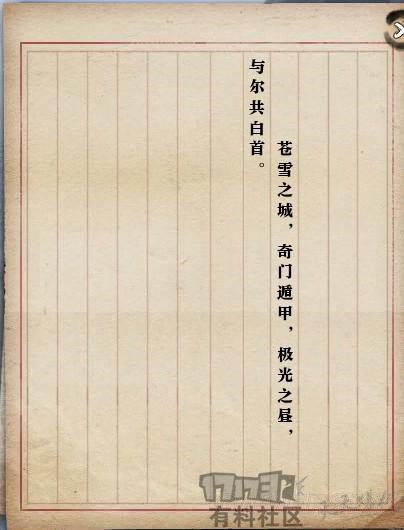 苍雪之城，奇门遁甲，极光之昼，
与尔共白首。
17173
有料社区